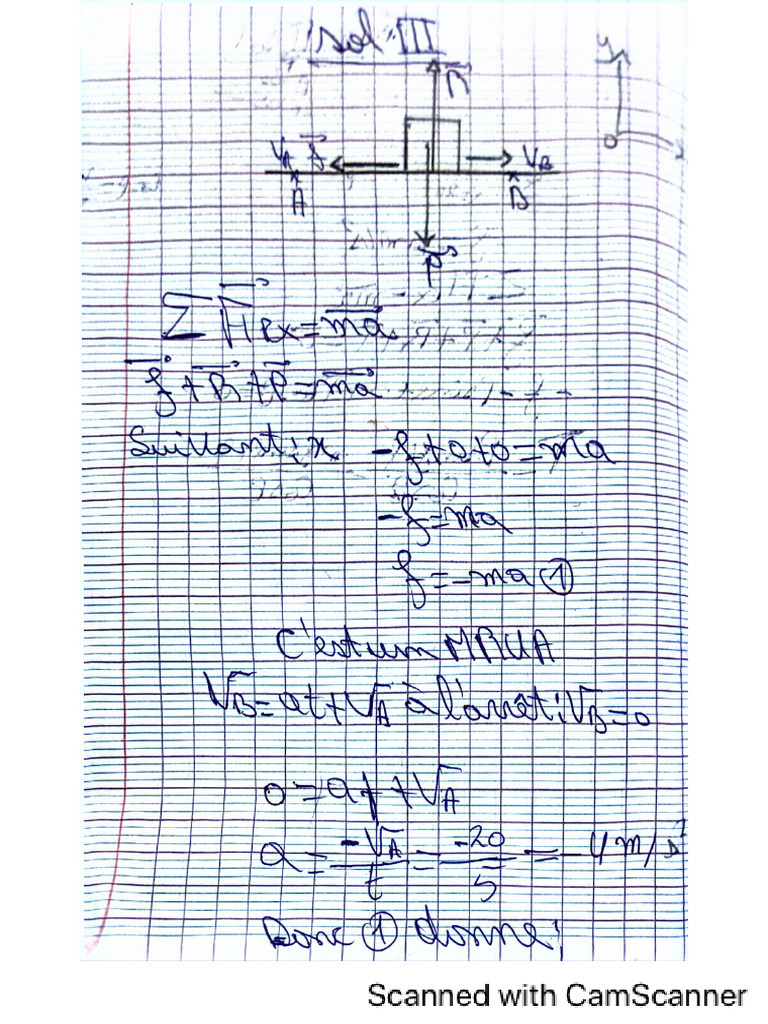 sol III
y
R
VA f
VB
O
x
A
B
P
∑Fex=ma
f+R+P=ma
Suivant: x -f+0+0=ma
-f=ma
f=-ma ①
C'est un MRUA
VB=at+VA à l'arrêt: VB=0
0=at+VA
a=-VA/t=-20/5=-4m/s²
Donc ① donne:
Scanned with CamScanner